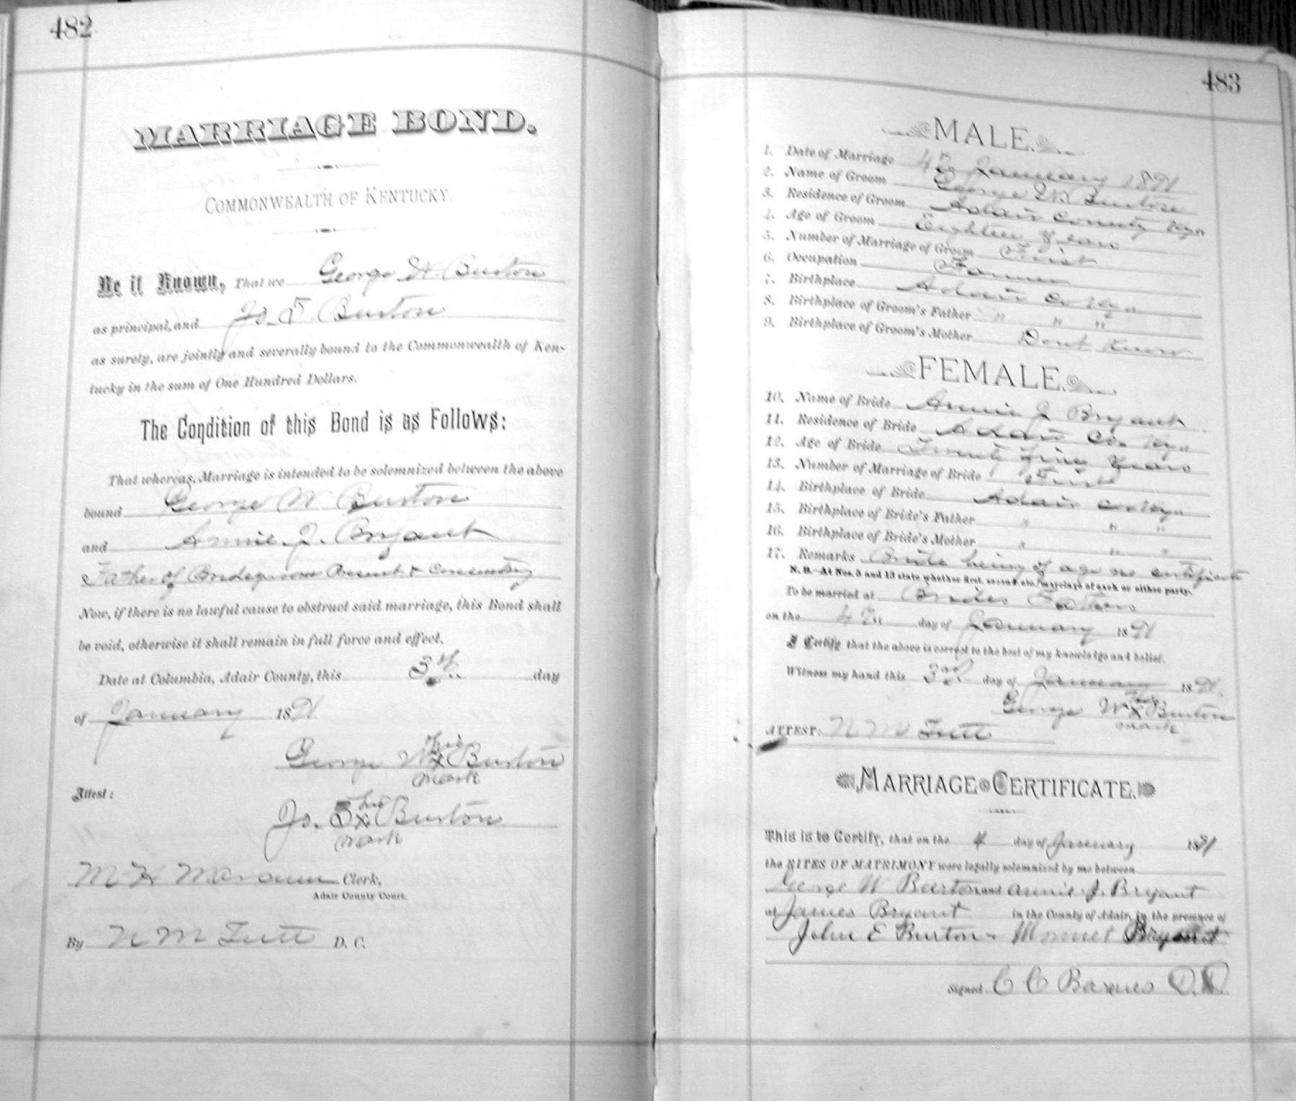 482
MARRIAGE BOND.
COMMONWEALTH OF KENTUCKY.
Be it Known, That we George W. Burton
as principal, and Jo. T. Burton
as surety, are jointly and severally bound to the Commonwealth of Ken-
tucky in the sum of One Hundred Dollars.
The Condition of this Bond is as Follows:
That whereas, Marriage is intended to be solemnized between the above
bound George W Burton
and Annie J. Bryant
Father of Bridegroom Present & Consenting
Now, if there is no lawful cause to obstruct said marriage, this Bond shall
be void, otherwise it shall remain in full force and effect.
Date at Columbia, Adair County, this 3rd day
of January 1891
George W his x mark Burton
Attest:
Jo. T his x mark Burton
M H Clerk,
Adair County Court.
By N M Tutt D. C.
483
MALE.
1. Date of Marriage 4th January 1891
2. Name of Groom George W. Burton
3. Residence of Groom Adair County Ky
4. Age of Groom Eighteen years
5. Number of Marriage of Groom First
6. Occupation Farmer
7. Birthplace Adair co Ky
8. Birthplace of Groom's Father " " "
9. Birthplace of Groom's Mother Dont Know
FEMALE.
10. Name of Bride Annie J Bryant
11. Residence of Bride Adair Co. Ky
12. Age of Bride Twenty five years
13. Number of Marriage of Bride First
14. Birthplace of Bride Adair co Ky
15. Birthplace of Bride's Father " " "
16. Birthplace of Bride's Mother " " "
17. Remarks Bride being of age no certificate
N. B.—At Nos. 5 and 13 state whether first, second, etc., marriage of each or either party.
To be married at Brides Fathers
on the 4th day of January 1891
I Certify that the above is correct to the best of my knowledge and belief.
Witness my hand this 3rd day of January 1891
George W his x mark Burton
ATTEST: N M Tutt
MARRIAGE CERTIFICATE.
This is to Certify, that on the 4 day of January 1891
the RITES OF MATRIMONY were legally solemnized by me between
George W Burton and Annie J. Bryant
at James Bryant in the County of Adair, in the presence of
John E Burton & Bryant
Signed C C Barnes